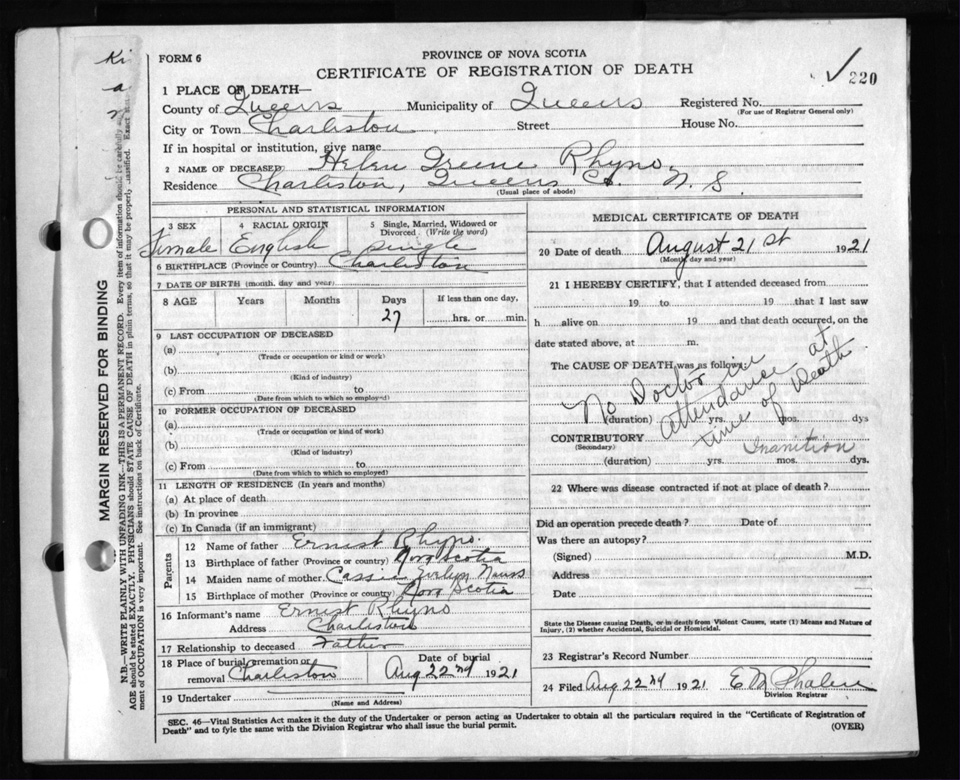 FORM 6
PROVINCE OF NOVA SCOTIA
CERTIFICATE OF REGISTRATION OF DEATH
220
1 PLACE OF DEATH—
County of Queens Municipality of Queens Registered No.
(For use of Registrar General only)
City or Town Charliston Street House No.
If in hospital or institution, give name
2 NAME OF DECEASED Helen Irene Rhyno
Residence Charliston, Queens Co. N.S.
(Usual place of abode)
PERSONAL AND STATISTICAL INFORMATION
3 SEX 4 RACIAL ORIGIN 5 Single, Married, Widowed or Divorced (Write the word)
Female English single
6 BIRTHPLACE (Province or Country) Charliston
7 DATE OF BIRTH (month, day and year)
8 AGE Years Months Days If less than one day,
27 hrs. or min.
9 LAST OCCUPATION OF DECEASED
(a)
(Trade or occupation or kind or work)
(b)
(Kind of industry)
(c) From to
(Date from which to which so employed)
10 FORMER OCCUPATION OF DECEASED
(a)
(Trade or occupation or kind of work)
(b)
(Kind of industry)
(c) From to
(Date from which to which so employed)
11 LENGTH OF RESIDENCE (In years and months)
(a) At place of death
(b) In province
(c) In Canada (if an immigrant)
Parents
12 Name of father Ernest Rhyno.
13 Birthplace of father (Province or country) Nova Scotia
14 Maiden name of mother Cassie Evelyn Nauss
15 Birthplace of mother (Province or country) Nova Scotia
16 Informant's name Ernest Rhyno
Address Charliston
17 Relationship to deceased Father
18 Place of burial, cremation or removal Charliston
Date of burial
Aug 22nd 1921
19 Undertaker
(Name and Address)
MEDICAL CERTIFICATE OF DEATH
20 Date of death August 21st 1921
(Month, day and year)
21 I HEREBY CERTIFY, that I attended deceased from
19 to 19 that I last saw
h alive on 19 and that death occurred, on the
date stated above, at m.
The CAUSE OF DEATH was as follows
No Doctor in
attendance at
time of Death
(duration) yrs. mos. dys
CONTRIBUTORY
(Secondary)
Inanition
(duration) yrs. mos. dys.
22 Where was disease contracted if not at place of death?
Did an operation precede death? Date of
Was there an autopsy?
(Signed) M.D.
Address
Date
State the Disease causing Death, or in death from Violent Causes, state (1) Means and Nature of
Injury, (2) whether Accidental, Suicidal or Homicidal.
23 Registrar's Record Number
24 Filed Aug 22nd 1921
Division Registrar
SEC. 46—Vital Statistics Act makes it the duty of the Undertaker or person acting as Undertaker to obtain all the particulars required in the "Certificate of Registration of
Death" and to fyle the same with the Division Registrar who shall issue the burial permit.
(OVER)
MARGIN RESERVED FOR BINDING
N.B.—WRITE PLAINLY WITH UNFADING INK—THIS IS A PERMANENT RECORD. Every item of information should be carefully
AGE should be stated EXACTLY. PHYSICIANS should STATE CAUSE OF DEATH in plain terms, so that it may be properly classified. Exact
ment of OCCUPATION is very important. See instructions on back of Certificate.